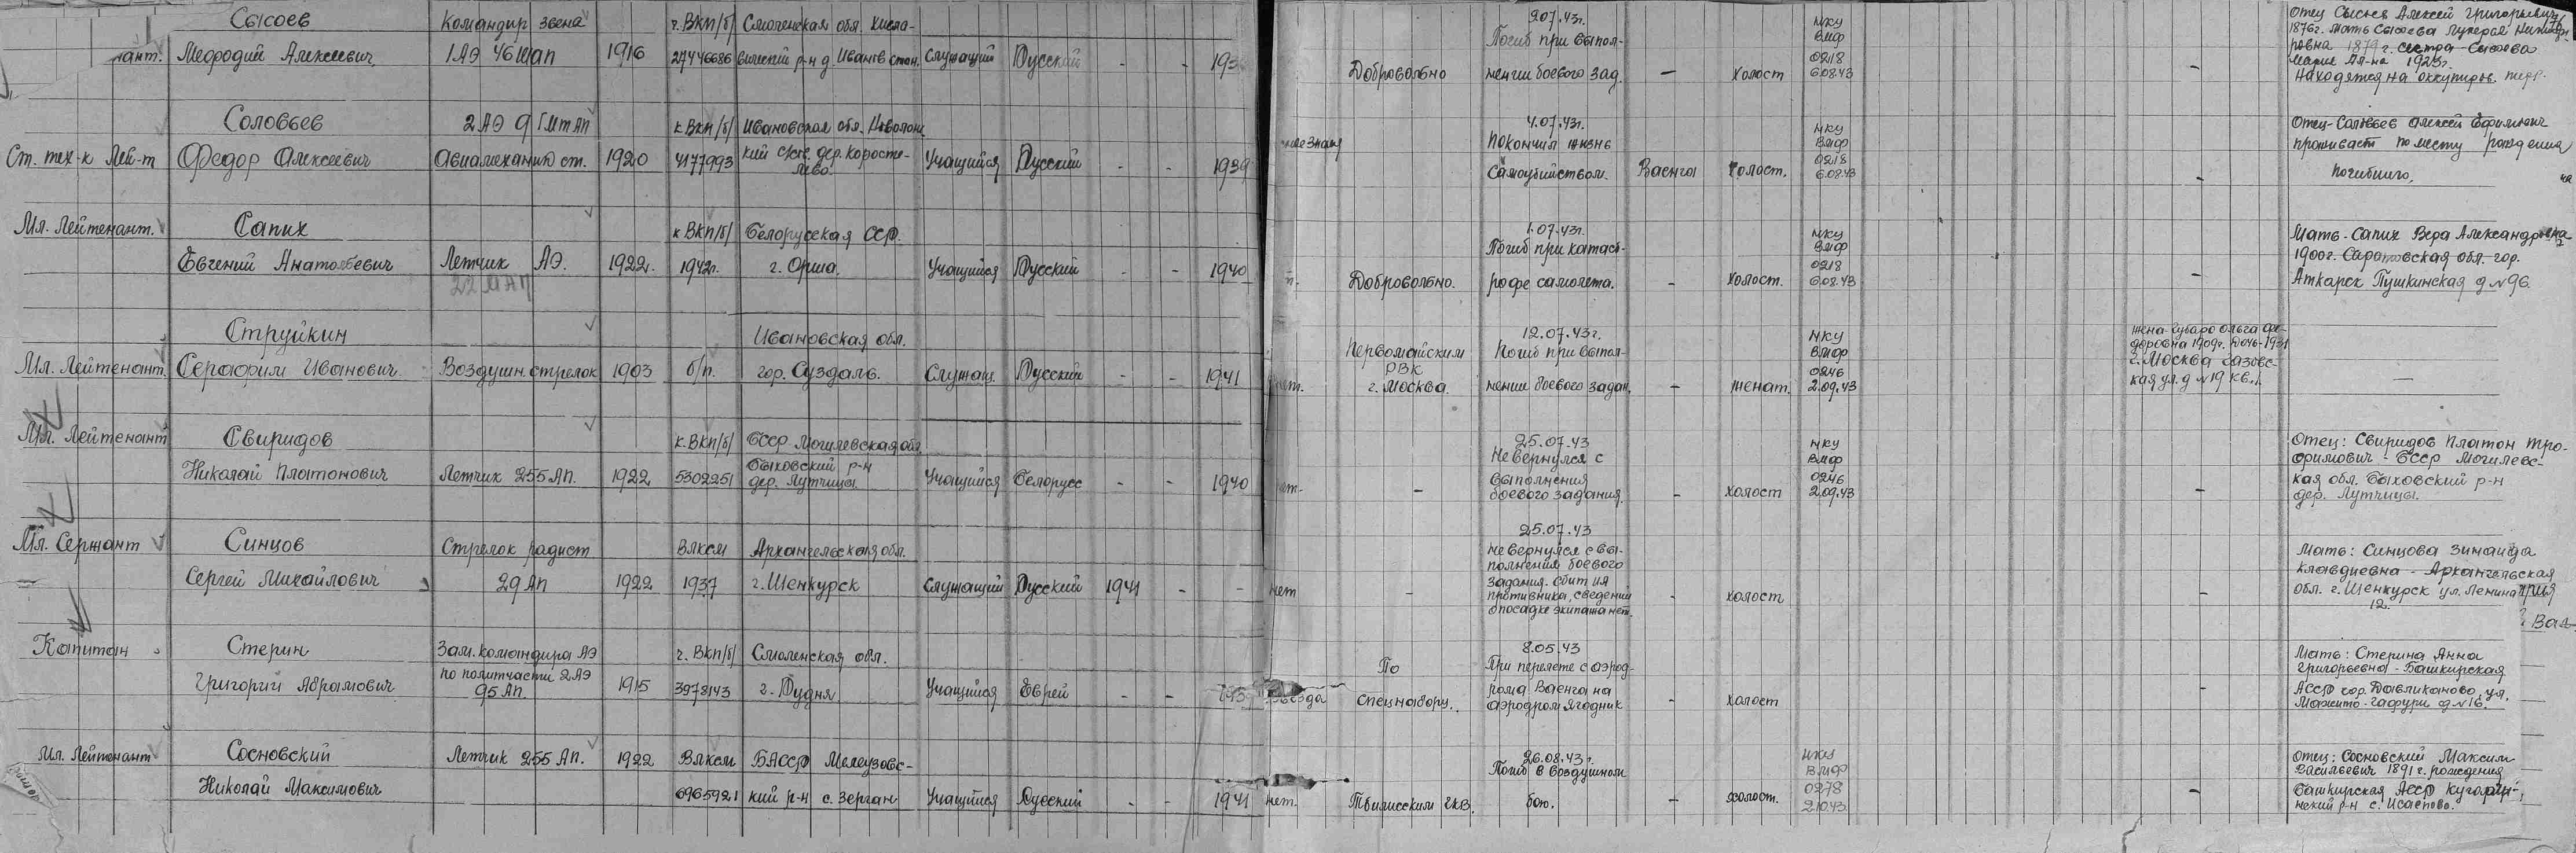 Сысоев Командир звена ч. ВКП/б/ Смоленская обл. Хисла-
нант. Мефодий Алексеевич 1 АЭ 46 шап 1916 27446686 вический р-н д. Иванов стан. Служащий Русский - -
Добровольно
9.07.43г.
Погиб при выпол-
нении боевого зад.
- Холост
НКУ
ВМФ
0218
6.08.43
-
Отец Сысоев Алексей Григорьевич
1876г. Мать Сысоева Лукерья
ровна 1879 г. Сестра Сысоева
1923г.
Находятся на оккупиров. терр.
Соловьев 2 АЭ 9 ГМТАП к ВКП/б/ Ивановская обл.
Ст. тех-к Лей-т Федор Алексеевич Авиамеханик ст. 1920 4177993 кий с/сов. дер. Коросте-
лево. Учащийся Русский - - 1939
4.07.43г.
Покончил жизнь
самоубийством.
Ваенга Холост.
НКУ
ВМФ
0218
6.08.43
-
Отец-Соловьев Алексей Ефимович
проживает по месту рождения
погибшего.
Мл. Лейтенант. Сапих к ВКП/б/ Белорусская ССР.
Евгений Анатольевич Летчик АЭ. 1922г. 1942г. г. Орша. Учащийся Русский - - 1940
22 ИАП
Добровольно.
1.07.43г.
Погиб при катаст-
рофе самолета.
- Холост.
НКУ
ВМФ
0218
6.08.43
-
Мать-Сапих Вера Александровна
1900г. Саратовская обл. гор.
Аткарск Пушкинская д №96.
Струйкин Ивановская обл.
Мл. Лейтенант. Серафим Иванович Воздушн. стрелок 1903 б/п. гор. Суздаль. Служащ. Русский - - 1941
Первомайским
РВК
г. Москва.
12.07.43г.
Погиб при выпол-
нении боевого задан.
- женат.
НКУ
ВМФ
0246
2.09.43
жена-Губаро Ольга Фе-
доровна 1909г. Дочь-1931
г. Москва Газовс-
кая ул. д №19 кв.1.
-
Мл. Лейтенант Свиридов к. ВКП/б/ БССР Могилевская обл.
Николай Платонович Летчик 255 АП. 1922 5302251 Быховский р-н
дер. Лутчицы. Учащийся Белорусс - - 1940
-
25.07.43
Не вернулся с
выполнения
боевого задания.
- холост
НКУ
ВМФ
0246
2.09.43
-
Отец: Свиридов Платон Тро-
фимович - БССР Могилевс-
кая обл. Быховский р-н
дер. Лутчицы.
Мл. Сержант Синцов Стрелок радист ВЛКСМ Архангельская обл.
Сергей Михайлович 29 АП 1922 1937 г. Шенкурск Служащий Русский 1941 - -
нет -
25.07.43
не вернулся с вы-
полнения боевого
задания. Сбит ИА
противника, сведений
о посадке экипажа нет.
- холост
-
Мать: Синцова Зинаида
Клавдиевна - Архангельская
обл. г. Шенкурск ул. Ленина
12.
Капитан Стерин Зам. командира АЭ ч. ВКП/б/ Смоленская обл.
Григорий Абрамович по политчасти 2 АЭ
95 АП. 1915 3978143 г. Рудня Учащийся Еврей - -
По
Спецнабору.
8.05.43
При перелете с аэрод-
рома Ваенга на
аэродром Ягодник
- холост
-
Мать: Стерина Анна
Григорьевна - Башкирская
АССР гор. Давликаново, ул.
Мажито-Гафури д №16.
Мл. Лейтенант Сосновский Летчик 255 АП. 1922 ВЛКСМ БАССР Мелеузовс-
Николай Максимович 6965921 кий р-н с. Зерган Учащийся Русский - - 1941
нет. Тбилисским ГКВ.
26.08.43г.
Погиб в воздушном
бою.
- холост.
НКУ
ВМФ
0278
2.10.43.
-
Отец: Сосновский Максим
Васильевич 1891 г. рождения
Башкирская АССР
нский р-н с. Исаево.